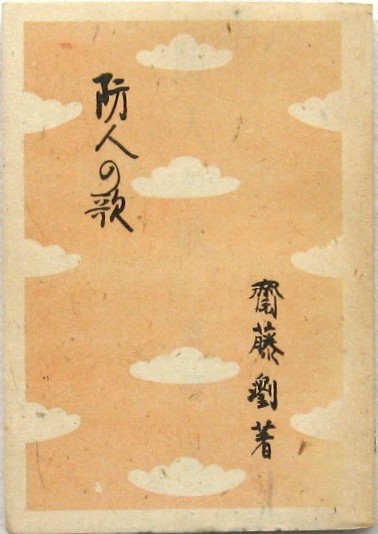 防人の歌
齋藤瀏著